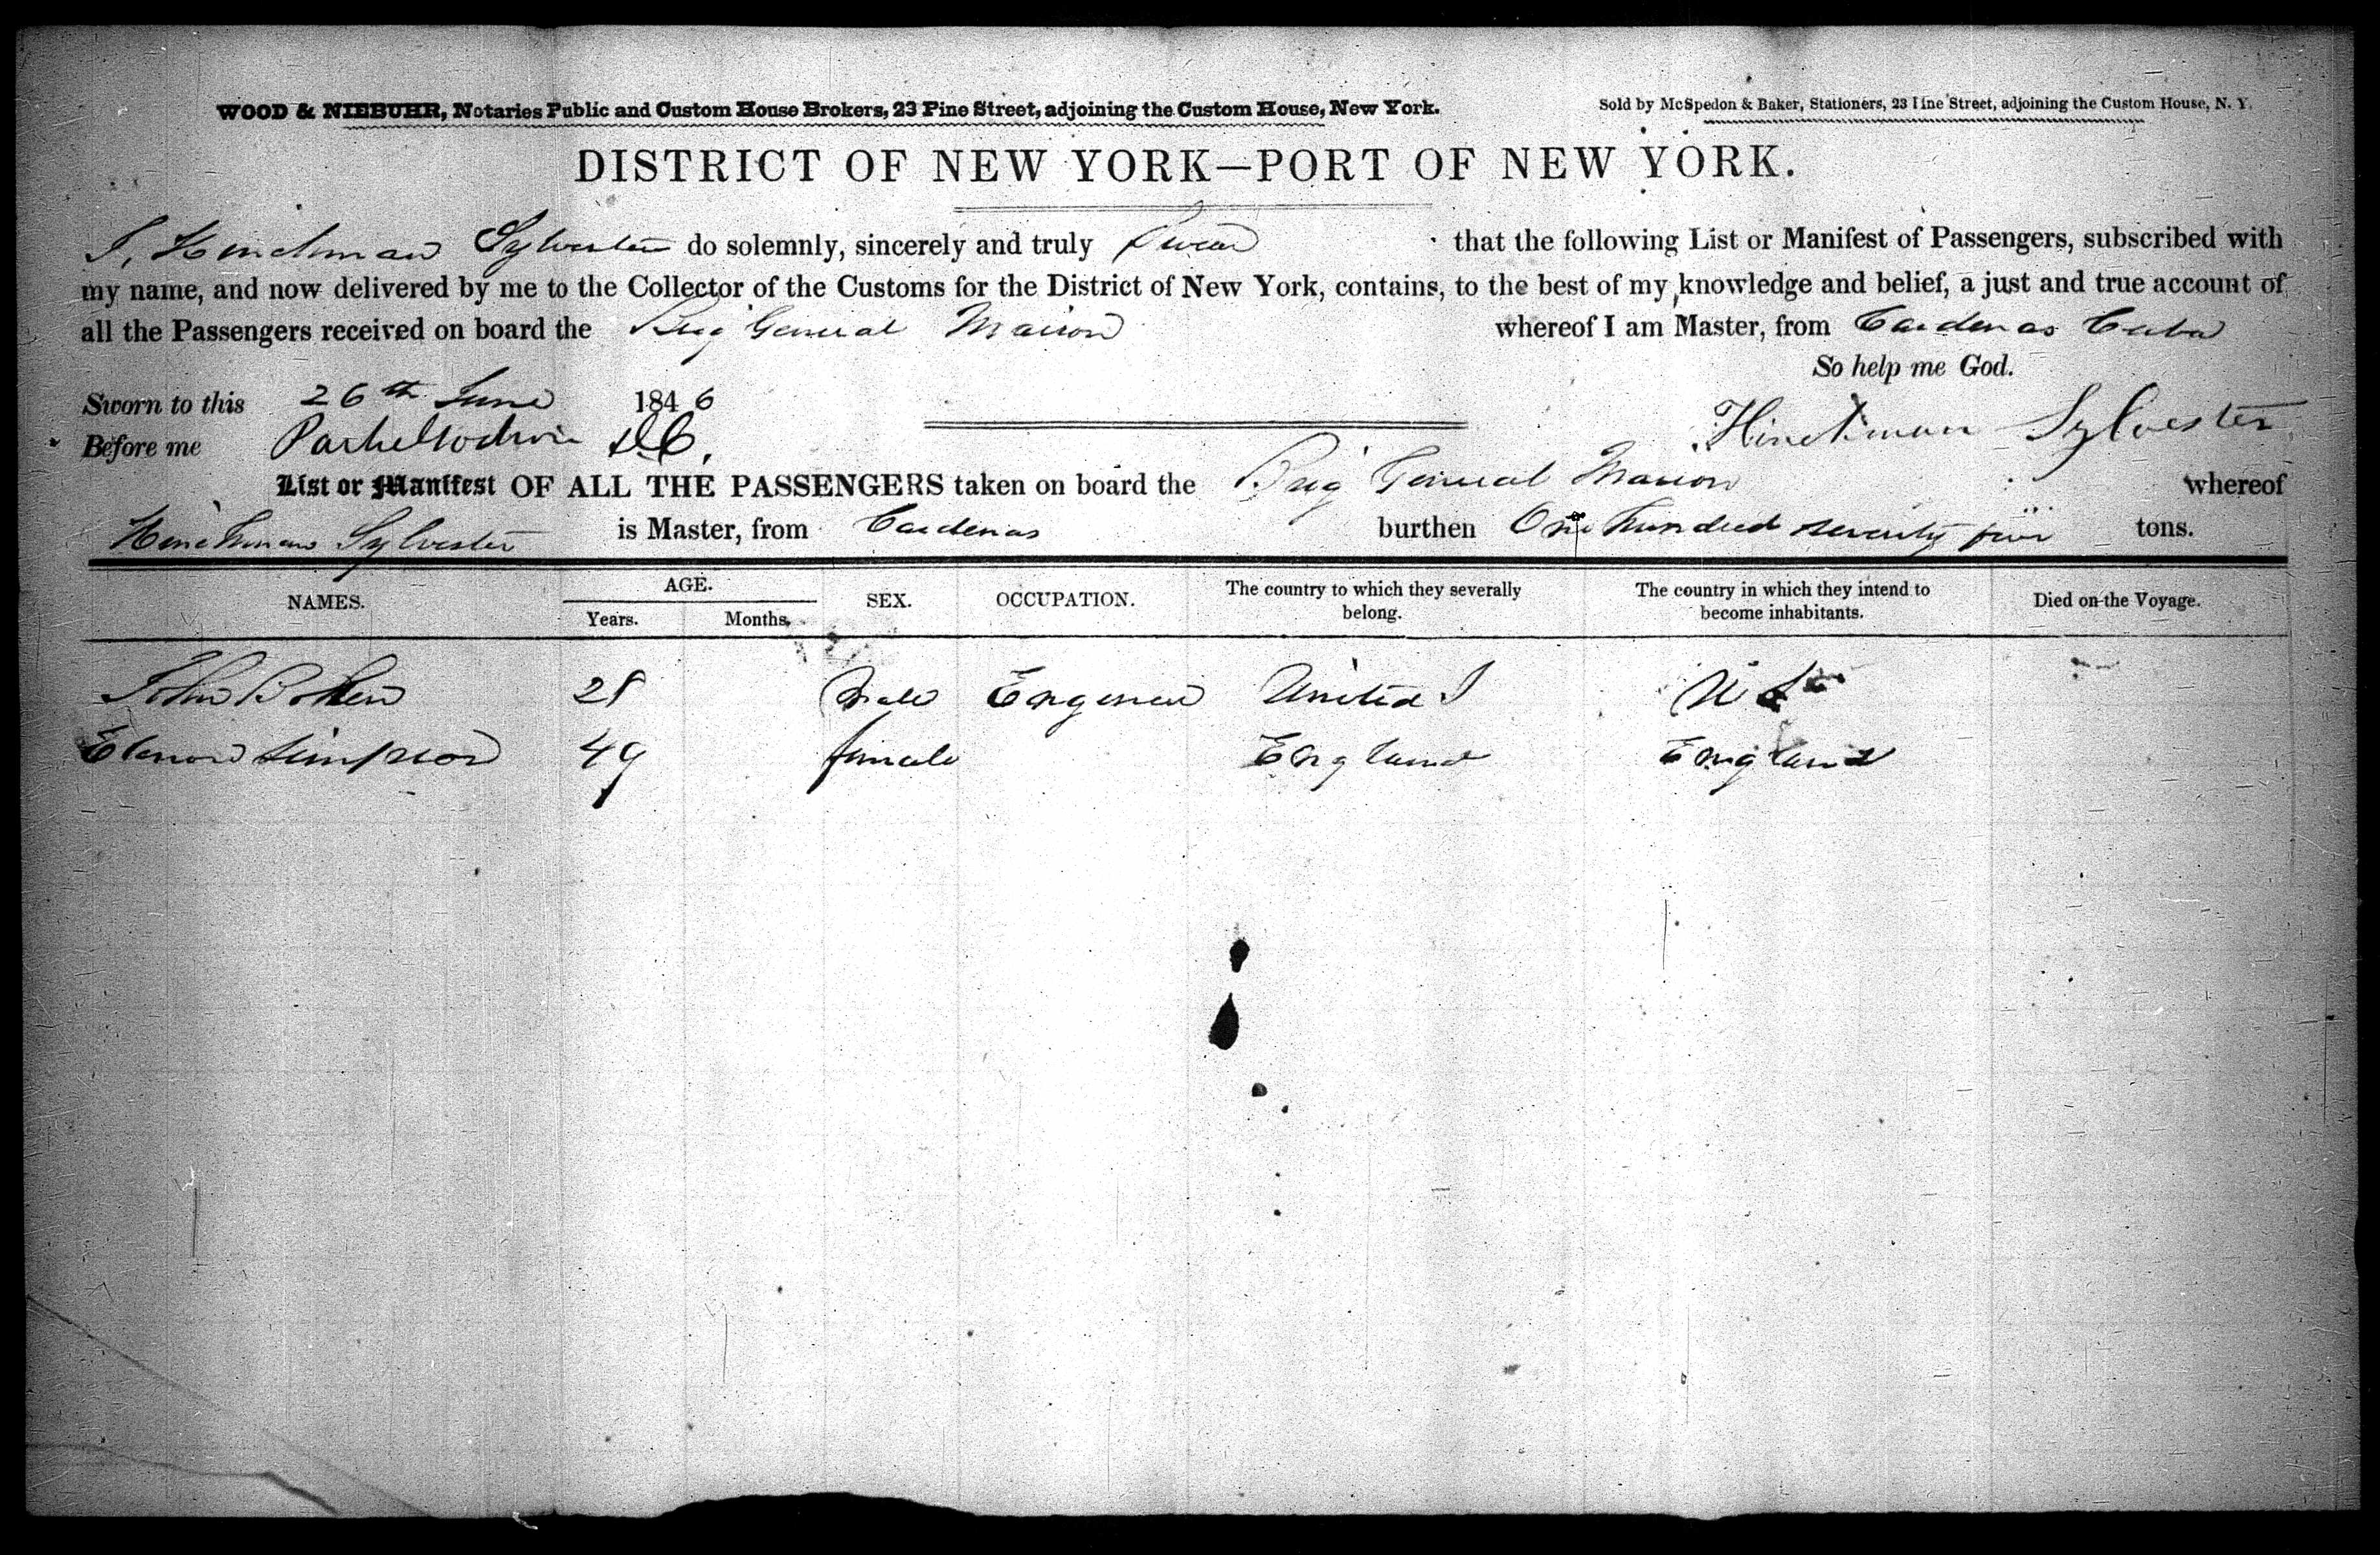 WOOD & NIEBUHR, Notaries Public and Custom House Brokers, 23 Pine Street, adjoining the Custom House, New York.
Sold by McSpedon & Baker, Stationers, 23 Pine Street, adjoining the Custom House, N. Y.
DISTRICT OF NEW YORK—PORT OF NEW YORK.
I, Hinckman Sylvester do solemnly, sincerely and truly Swear that the following List or Manifest of Passengers, subscribed with
my name, and now delivered by me to the Collector of the Customs for the District of New York, contains, to the best of my knowledge and belief, a just and true account of
all the Passengers received on board the Brig General Marion whereof I am Master, from Cardenas Cuba
So help me God.
Sworn to this 26th June 1846
Hinckman Sylvester
Before me
List or Manifest OF ALL THE PASSENGERS taken on board the Brig General Marion whereof
Hinckman Sylvester is Master, from Cardenas burthen One hundred seventy five tons.
NAMES. AGE. SEX. OCCUPATION. The country to which they severally belong. The country in which they intend to become inhabitants. Died on the Voyage.
Years. Months.
John 28 Male Engeneer United S U S
Elenor Simpson 49 female England England